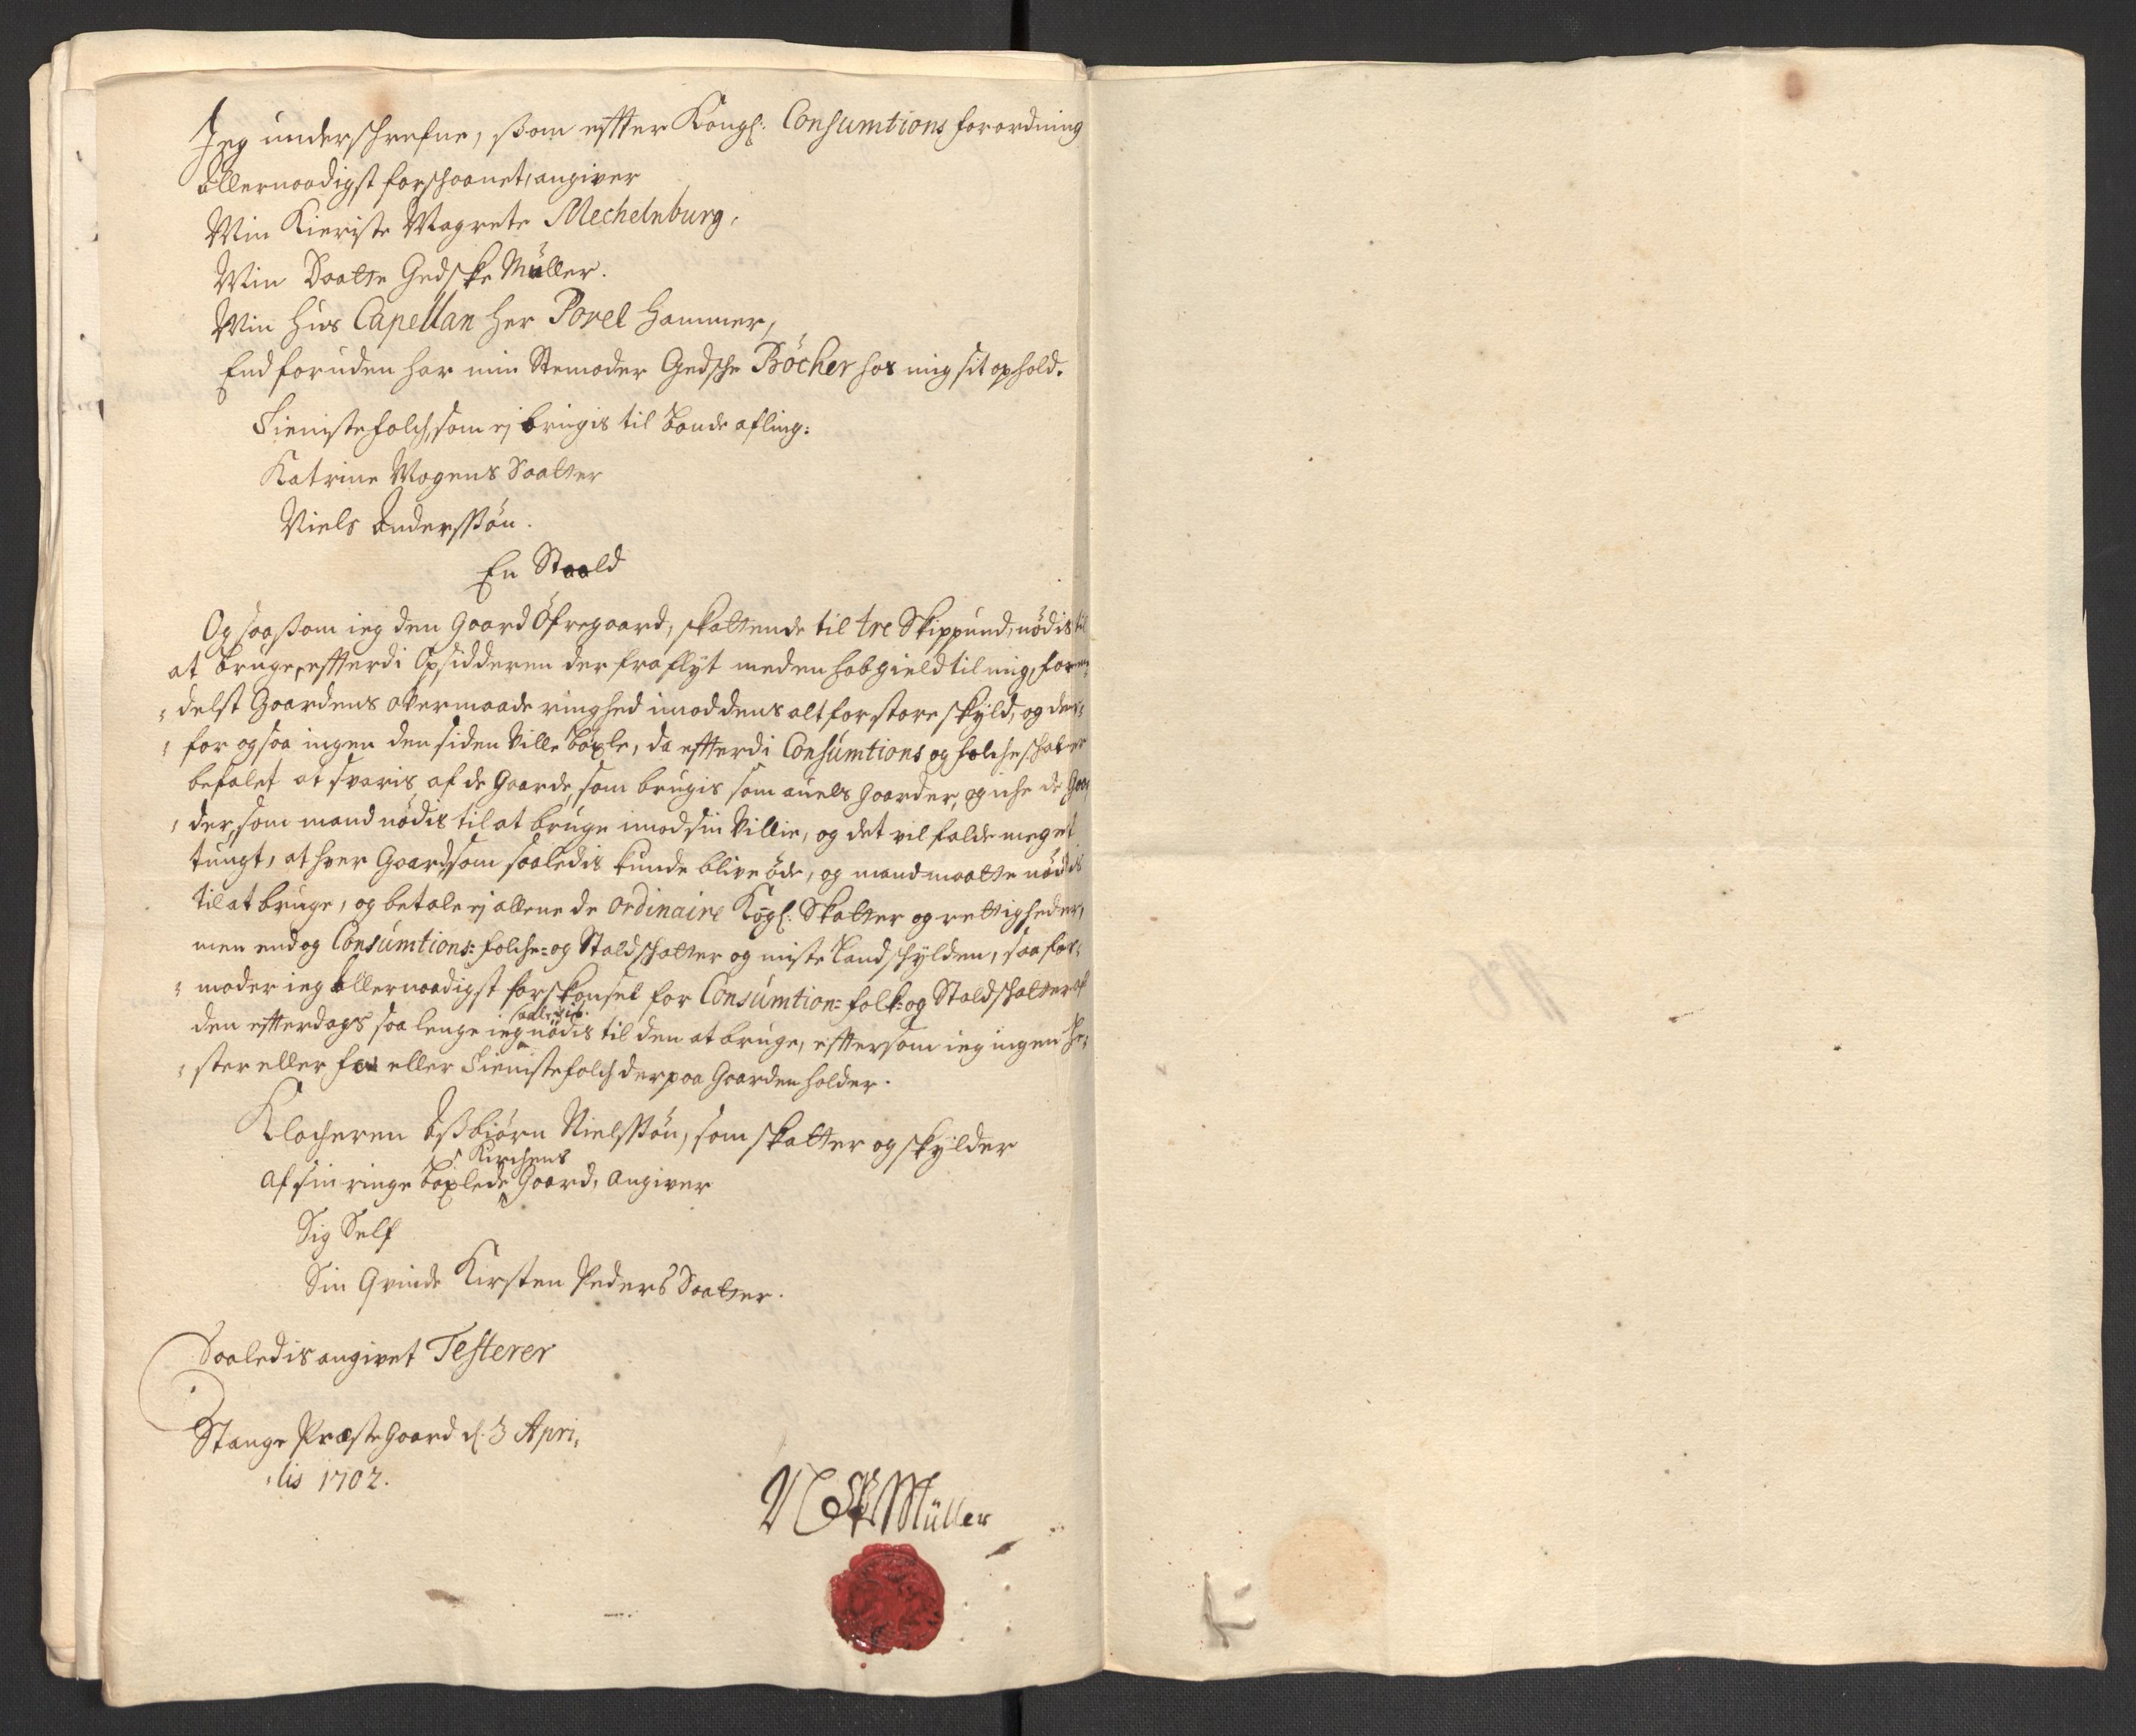 Jeg underschrefne, som effter Kongl: Consumtions forordning
Allernaadigst forschaanet, angiver
Min Kieriste Magrete Mechelnburg,
Min Daatter Gedske Müller.
Min Huus Capellan Her Povel Hammer,
End foruden har min Stemoder Gedsche Böcher hos mig sit ophold.
Tienistefolch, som ej brugis til bonde afling:
Katrine Mogens Daatter
Niels Anderssøn.
En Stald
Og saasom ieg den Gaard Öfregaard, skattende til tre Skippund, nødis til
at bruge, effterdi Opsidderen der fra flÿt med en hob gield til mig, for me¬
delst Gaardens overmaade ringhed imod dens alt for store skÿld, og der¬
for ogsaa ingen den siden ville böxle, da efferdi Consumtions og folcheschat er
befalet at svaris af de Gaarde, som brugis som auels Gaarder, og iche de Gaar
der, som mand nødis til at bruge imod sin villie, og det vil falde meget
tungt, at hver Gaard, som saaledis kunde blive øde, og mand maatte nødis
til at bruge, og betale ej allene de ordinaire Kögl: Skatter og rettigheder,
men end og Consumtions: folche- og Staldschatter og miste Landschÿlden, saa for¬
moder ieg Allernaadigst forskonsel for Consumtion- folk- og Staldschatter af
den effterdags saa lenge ieg saaledis nødis til den at bruge, effersom ieg ingen He¬
ster eller fæ eller Tienistefolch derpaa Gaarden holder.
Klocheren Asbiørn Nielssøn, som skatter og skÿlder
af sin ringe böxlede Kirchens Gaard, angiver
Sig Self
Sin Qvinde Kirsten Peders Daatter.
Saaledis angivet Testerer
Stange Præste Gaard d. 3 Apri¬
lis 1702.
Müller